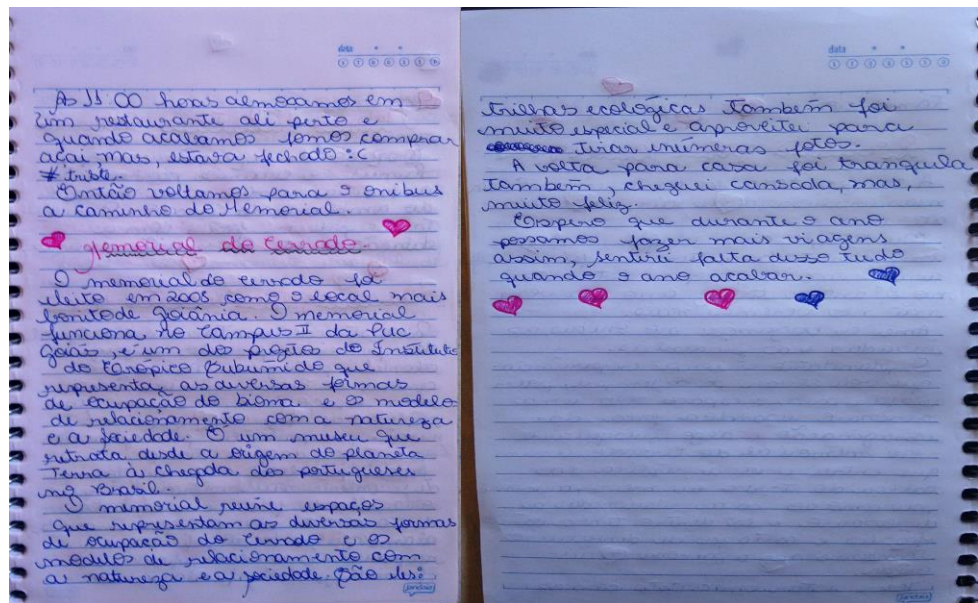 data
As 11:00 horas almoçamos em
um restaurante ali perto e
quando acabamos fomos comprar
açaí, mas, estava fechado :c
# triste.
Então voltamos para o onibus
a caminho do Memorial.
Memorial do Cerrado.
O memorial do cerrado foi
eleito em 2005 como o local mais
bonito de Goiânia. O memorial
funciona no Campus II da Puc
Goiás, é um dos projetos do Instituto
do Trópico Subumido que
representa, as diversas formas
de ocupação do bioma e os modelos
de relacionamento com a natureza
e a sociedade. É um museu que
retrata desde a origem do planeta
Terra à chegada dos portugueses
no Brasil.
O memorial reune espaços
que representam as diversas formas
de ocupação do Cerrado e os
modelos de relacionamento com
a natureza e a sociedade. São eles:
jandaia
data
trilhas ecologicas também foi
muito especial e aproveitei para
tirar enúmeras fotos.
A volta para casa foi tranquila
também, cheguei cansada, mas,
muito feliz.
Espero que durante o ano
possamos fazer mais viagens
assim, sentirei falta disso tudo
quando o ano acabar.
jandaia